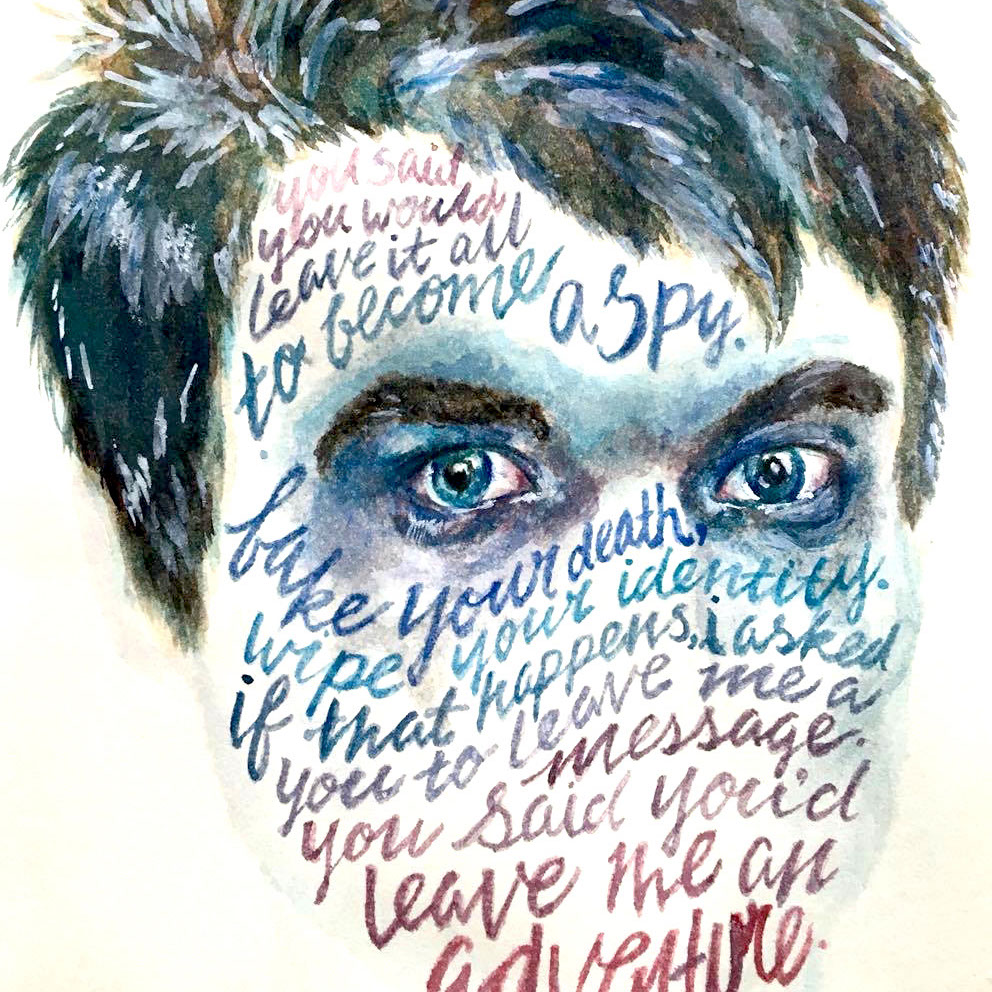 you said
you would
leave it all
to become a spy.
fake your death,
wipe your identity.
if that happens, i asked
you to leave me a
message.
you said you'd
leave me an
adventure.